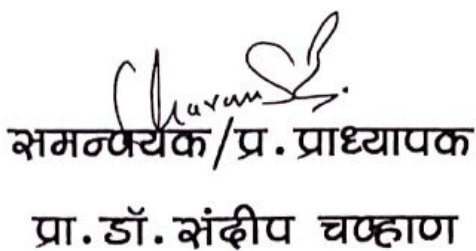 समन्वयक/प्र. प्राध्यापक
प्रा. डॉ. संदीप चव्हाण